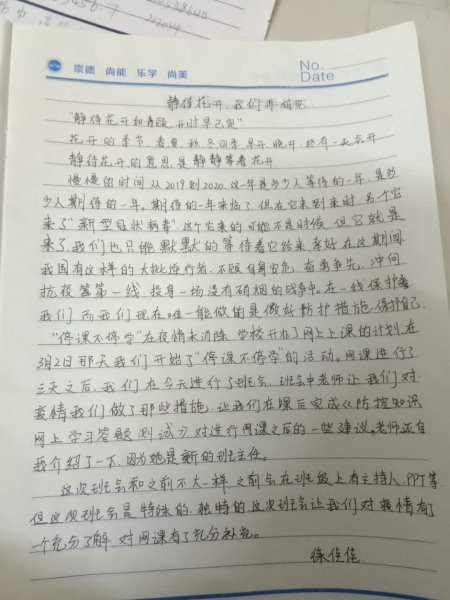 崇德 尚能 乐学 尚美
No.
Date
静待花开,我们再相见.
"静待花开和春暖 开时早已定"
花开的季节,春夏秋冬四季,早开晚开 终有一天会开
静待花开的意思是静静等着花开
慢慢的时间从2019到2020 这一年是多少人等待的一年,是多
少人期待的一年,期待的一年来临了,但在它未到来时,另个它
来了"新型冠状病毒",这个它来的可能不是时候,但它就是
来了,我们也只能默默的等待着它结束,幸好在这期间
我国有这样的大批逆行者,不顾自身安危,奋勇争先,冲向
抗疫第一线,投身一场没有硝烟的战争中,在一线保护着
我们,而我们现在唯一能做的是做好防护措施,保护自己.
"停课不停学"在疫情未消除,学校开办了网上上课的计划,在
3月2日那天我们开始了"停课不停学"的活动。网课进行了
三天之后,我们在今天进行了班会,班会中老师让我们对
疫情我们做了那些措施,让我们在课后完成《防控知识
网上学习答题测试》对进行网课之后的一些建议。老师还自
我介绍了一下,因为她是新的班主任。
这次班会和之前不大一样,之前会在班级上有主持人,PPT等
但这次班会是特殊的,独特的,这次班会让我们对疫情有了
一个充分了解,对网课有了充分补充。
徐佳佳